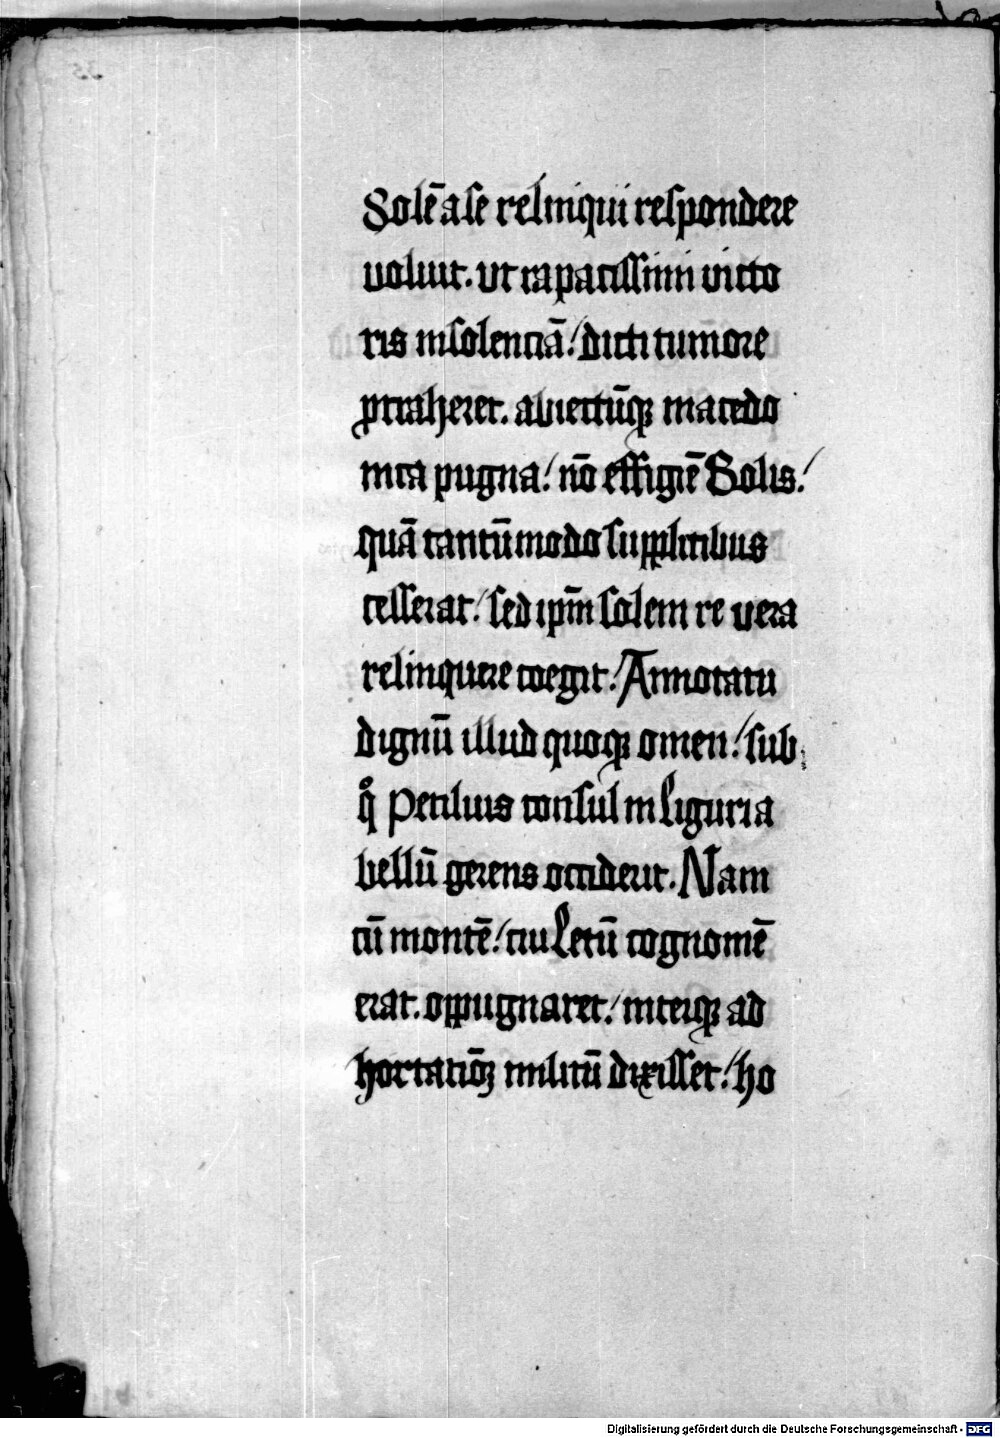 Solē a se relinqui respondere
voluit. vt rapacissimi victo
ris insolenciā / dicti tumore
ptraheret. abiectūqꝫ macedo
nica pugna / nō effigiē Solis /
quā tantūmodo supplicibus
cesserat / sed ipm̄ solem re vera
relinquere coegit / Annotatu
dignū illud quoqꝫ omen / sub
qͦ Petilius consul in Liguria
bellū gerens occiderit. Nam
cū montē / cui Letū cognomē
erat. oppugnaret / interqꝫ ad
hortatiōꝫ militū dixisset / ho
Digitalisierung gefördert durch die Deutsche Forschungsgemeinschaft - DFG